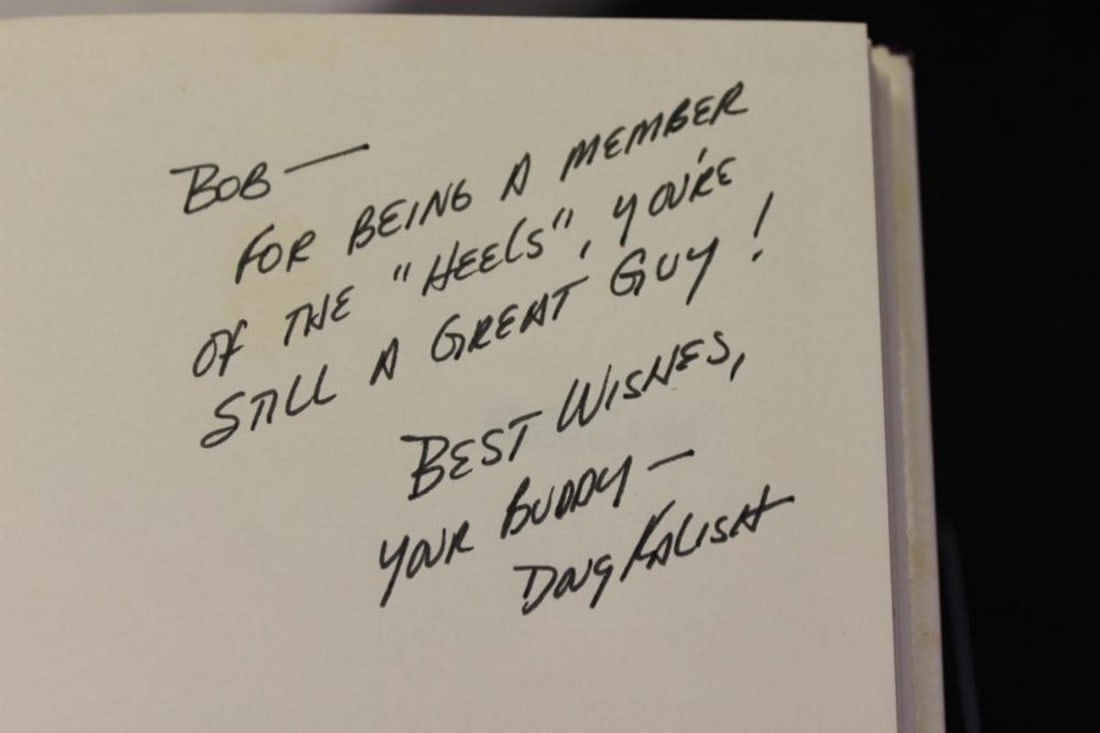 BOB —
FOR BEING A MEMBER
OF THE "HEELS", YOU'RE
STILL A GREAT GUY!
BEST WISHES,
YOUR BUDDY —
DOUG KALISH